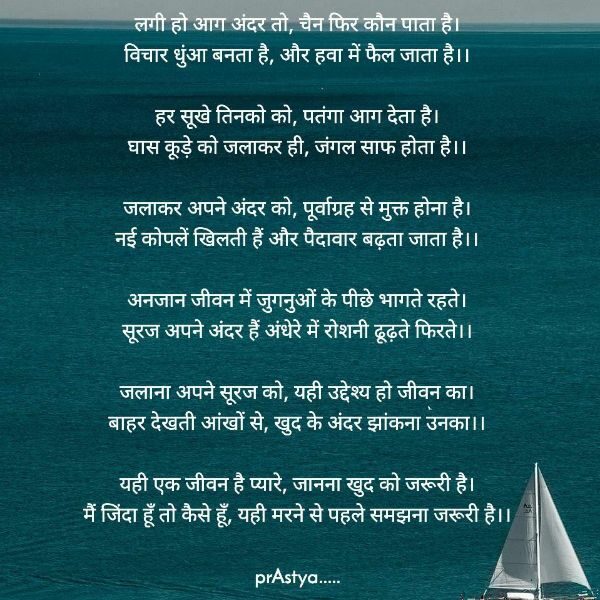 लगी हो आग अंदर तो, चैन फिर कौन पाता है।
विचार धुंआ बनता है, और हवा में फैल जाता है।।
हर सूखे तिनको को, पतंगा आग देता है।
घास कूड़े को जलाकर ही, जंगल साफ होता है।।
जलाकर अपने अंदर को, पूर्वाग्रह से मुक्त होना है।
नई कोपलें खिलती हैं और पैदावार बढ़ता जाता है।।
अनजान जीवन में जुगनुओं के पीछे भागते रहते।
सूरज अपने अंदर हैं अंधेरे में रोशनी ढूढ़ते फिरते।।
जलाना अपने सूरज को, यही उद्देश्य हो जीवन का।
बाहर देखती आंखों से, खुद के अंदर झांकना उनका।।
यही एक जीवन है प्यारे, जानना खुद को जरूरी है।
मैं जिंदा हूँ तो कैसे हूँ, यही मरने से पहले समझना जरूरी है।।
prAstya.....